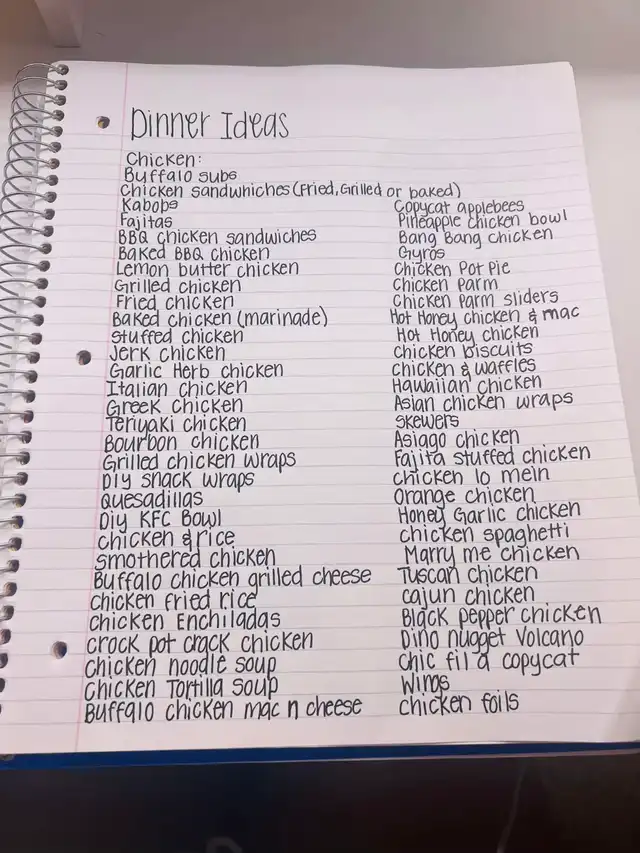 Dinner Ideas
Chicken:
Buffalo subs
Chicken sandwhiches (Fried, Grilled or baked)
Kabobs
Fajitas
BBQ chicken sandwiches
Baked BBQ chicken
Lemon butter chicken
Grilled chicken
Fried chicken
Baked chicken (marinade)
Stuffed chicken
Jerk chicken
Garlic Herb chicken
Italian chicken
Greek chicken
Teriyaki chicken
Bourbon chicken
Grilled chicken wraps
DIY snack wraps
Quesadillas
Diy KFC Bowl
chicken & rice
smothered chicken
Buffalo chicken grilled cheese
chicken fried rice
chicken Enchiladas
crock pot crack chicken
chicken noodle soup
chicken Tortilla soup
Buffalo chicken mac n cheese
Copycat applebees
Pineapple chicken bowl
Bang Bang chicken
Gyros
Chicken Pot Pie
Chicken Parm
Chicken Parm sliders
Hot Honey chicken & mac
Hot Honey chicken
chicken biscuits
chicken & waffles
Hawaiian chicken
Asian chicken wraps
skewers
Asiago chicken
Fajita stuffed chicken
chicken lo mein
Orange chicken
Honey Garlic chicken
chicken spaghetti
Marry me chicken
Tuscan chicken
cajun chicken
Black pepper chicken
Dino nugget Volcano
chic fil a copycat
wings
chicken foils